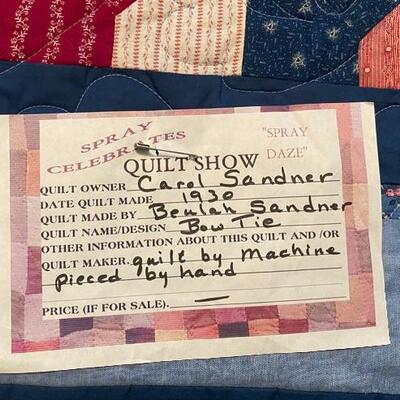 SPRAY
CELEBRATES
"SPRAY
DAZE"
QUILT SHOW
QUILT OWNER Carol Sandner
DATE QUILT MADE 1930
QUILT MADE BY Beulah Sandner
QUILT NAME/DESIGN Bow Tie
OTHER INFORMATION ABOUT THIS QUILT AND /OR
QUILT MAKER. quilt by Machine
pieced by hand
PRICE (IF FOR SALE). —